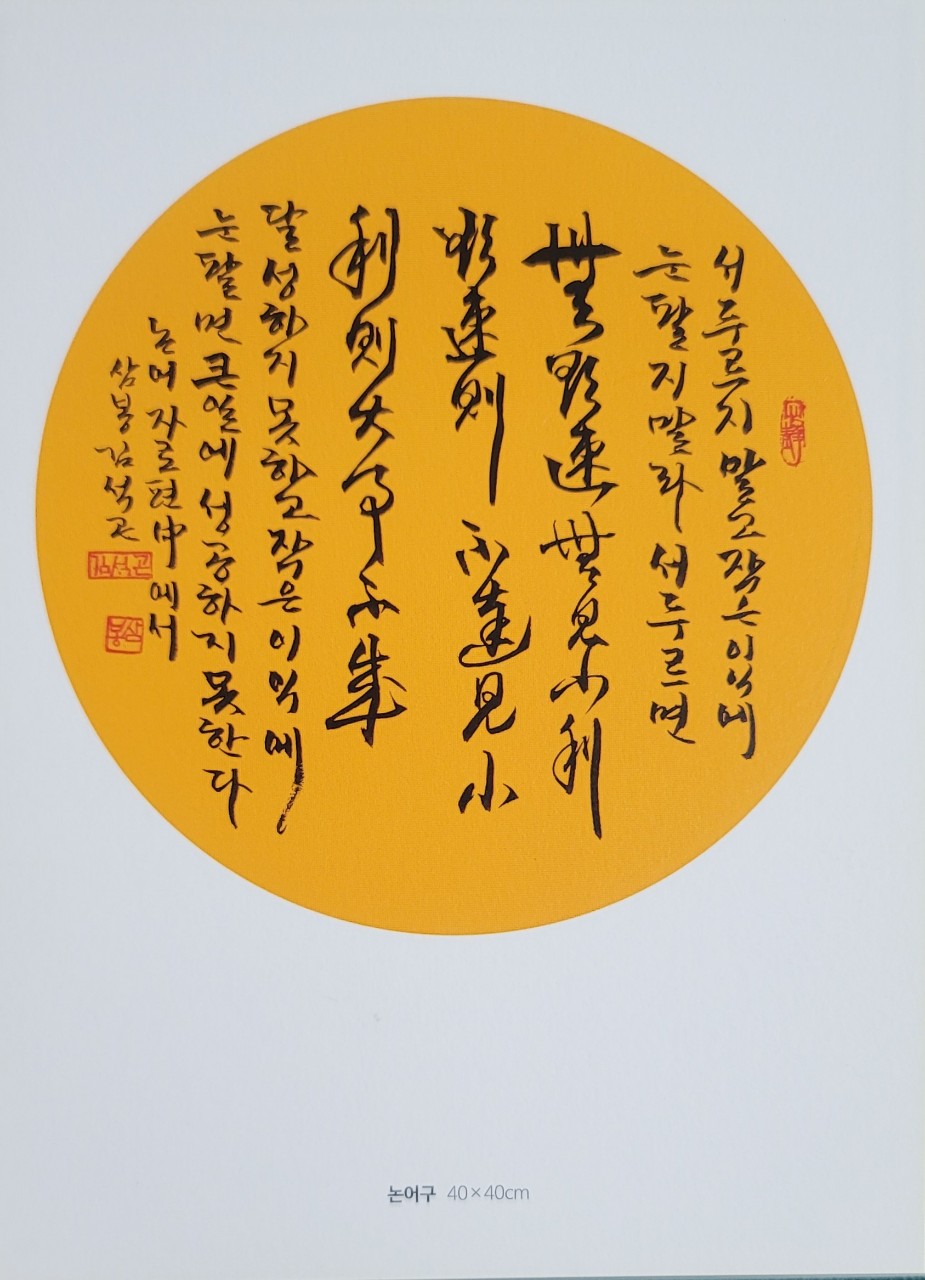 서두르지 말고 작은 이익에
눈팔지 말라 서두르면
無欲速無見小利
欲速則不達見小
利則大事不成
달성하지 못하고 작은 이익에
눈팔면 큰 일에 성공하지 못한다
논어 자로편 中에서
삼봉 김석곤
김석곤
삼봉
논어구 40×40cm